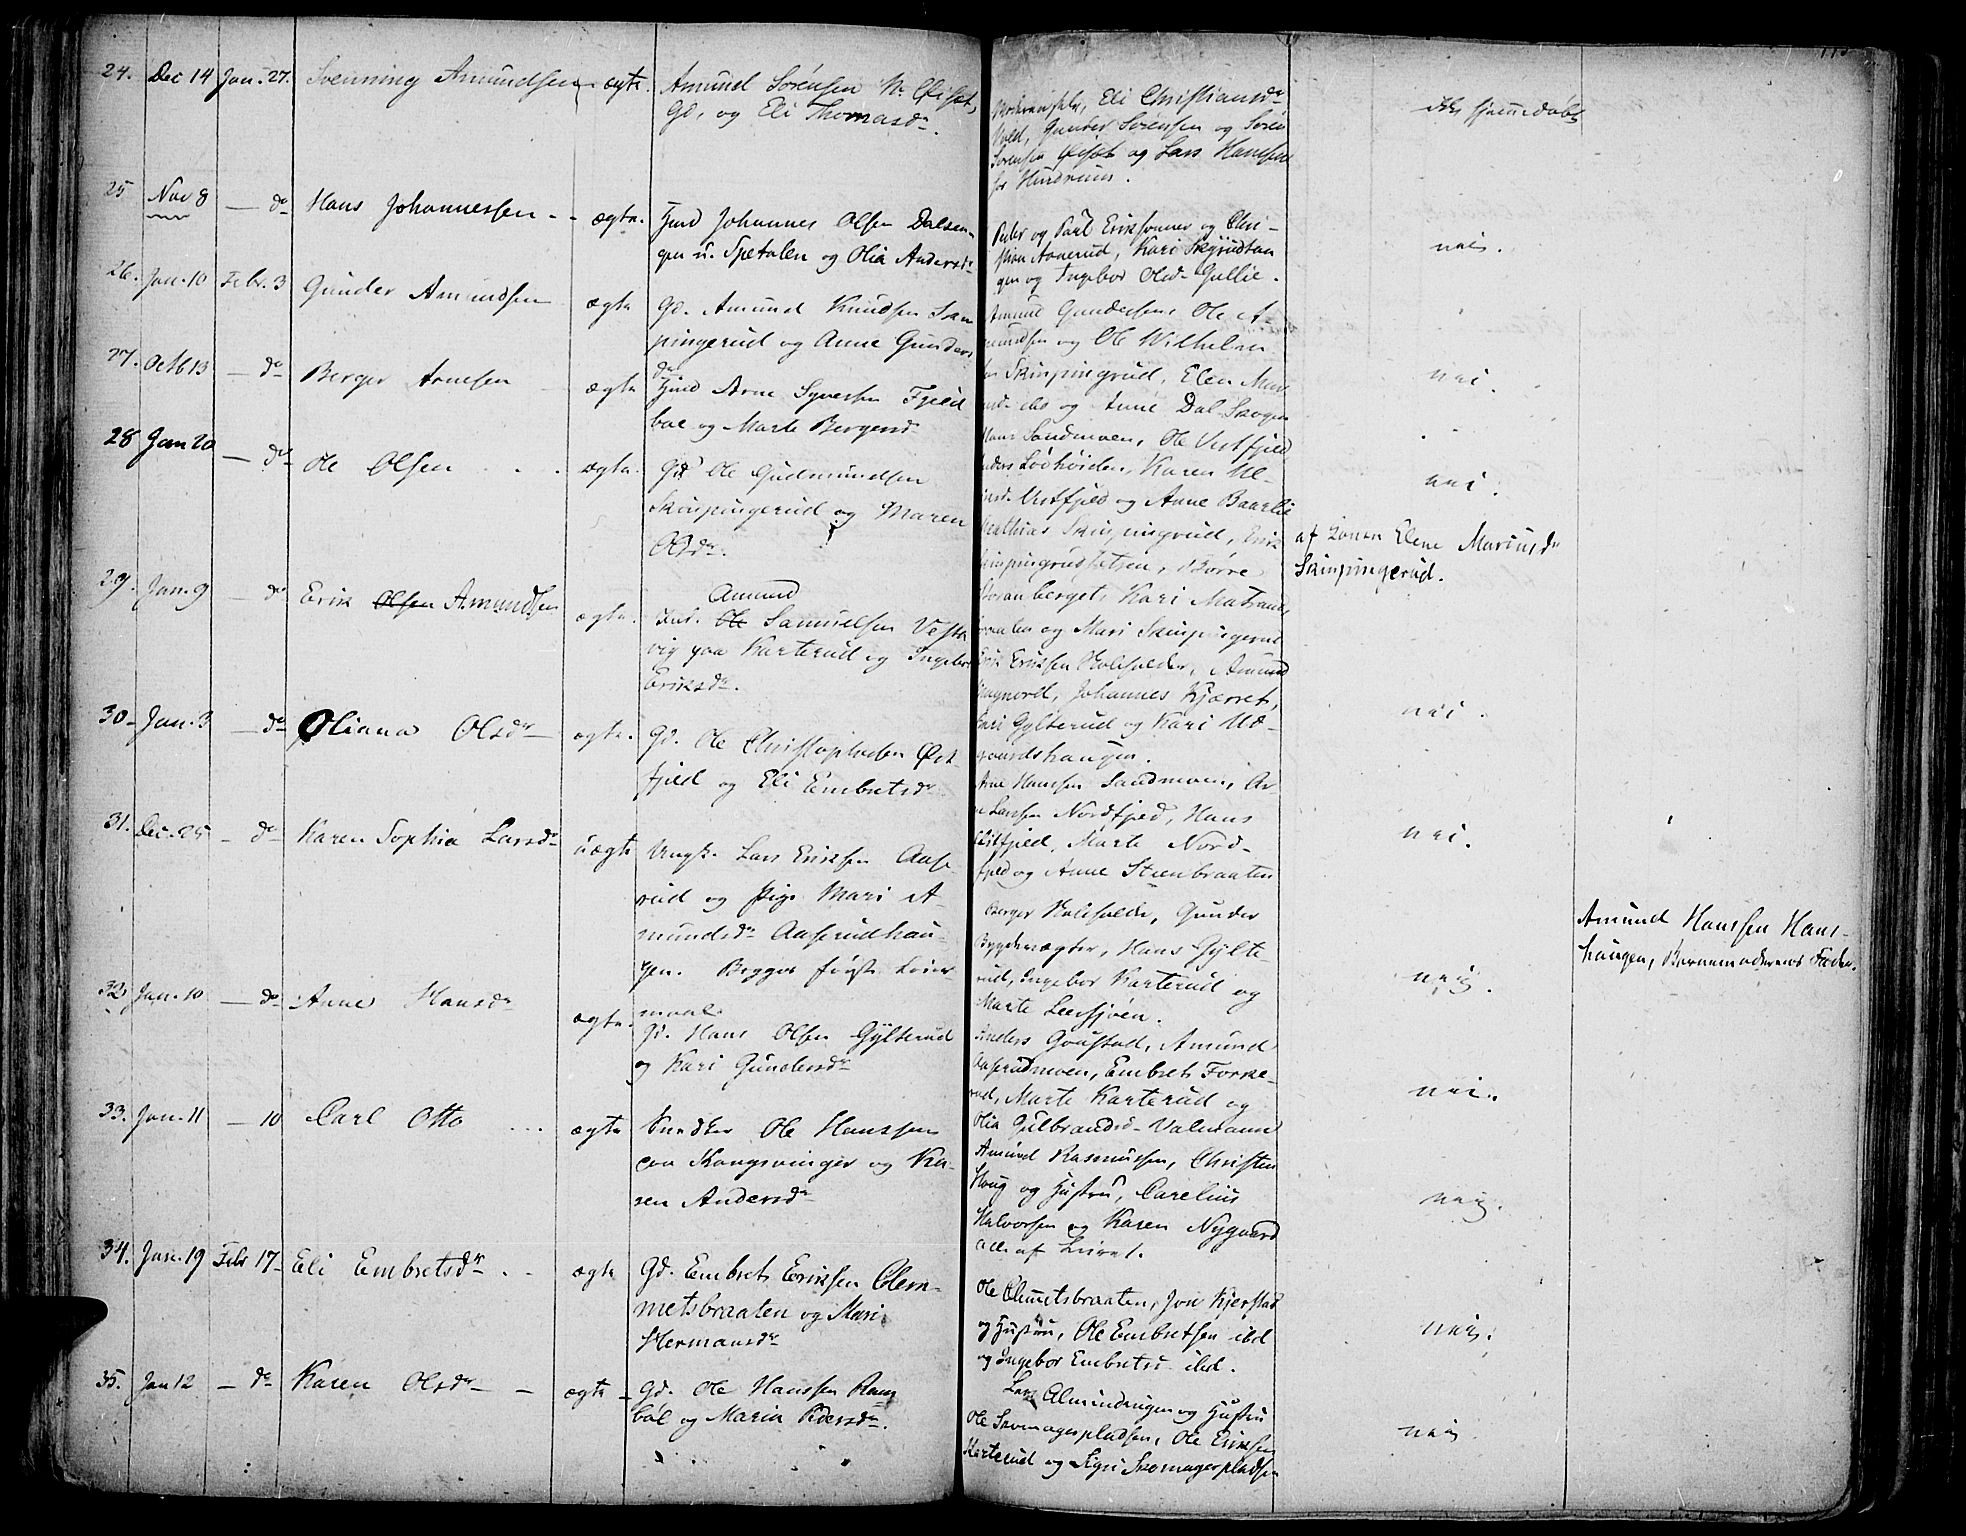 24. Dec 14 Jan. 27. Svenning Amundsen ægte. Amund Sørensen
Gd, og Eli Thomasdr.
Eli Christiansdr
Gunder Sørensen og Søren
Sørensen og Lars Hanssen
ikke hjemmedøbt
25 Nov 8 — do Hans Johannessen - - ægte. Johannes Olsen Dalsen-
gen u. Spetalen og Olia Andersd-
Peder og Paul Erikssønner og Chri-
stian Aanerud, Kari Skyrudtan
gen og Ingebor Olsd- Gullie.
nei.
26. Jan. 10 Febr. 3 Gunder Amundsen ægte Gd. Amund Knudsen Skin
pingerud og Anne Gunders
dr
Amund Gundersen, Ole A-
mundsen og Ole Wilhelm
sen Skinpingrud, Elen Mari
usd- ibd og Anne Dal Skogen
nei.
27. Octb 13 — do Berger Arnesen ægte Arne Syversen Fjeld
boe og Marte Bergersd-
Hans Sandmoen, Ole Vestfjeld
Karen
Vestfjeld og Anne Baarlie
nei.
28 Jan 20 — do Ole Olsen . . . ægte. Gd Ole Gudmundsen
Skinpingerud og Maren
Olsdr.
Mathias Skinpingrud, Erik
Skinpingrud
Kari Matrand
og Mari Skinpingerud
af Konen Elene Mariusdr
Skinpingerud.
29. Jan. 9 — do Erik Olsen Amundsen ægte. Amund
Inds. Ole Samuelsen Vestn
vig paa Karterud og Ingebor
Eriksdr.
Erik Eriksen Holsfolder, Amund
Magnord, Johannes Kjærret,
Kari Gylterud og Kari
gaardshaugen.
nei.
30- Jan. 3 — do Oliana Olsdr ægte. Gd. Ole Christophersen Øst
fjeld og Eli Embretsdr
Arne Hanssen Sandmoen, Ar
ne Larssen Nordfjeld, Hans
Østfjeld, Marte Nord-
fjeld og Anne Steenbraaten
nei.
31. Dec. 25 — do Karen Sophia Larsdr uægte Ungk. Lars Eriksen Aase
rud og Pige Mari A-
mundsdr Aaserudhau-
gen. Begges første Leier
maal.
Berger Holsfolder, Gunder
Hans Gylte-
rud, Ingebor Karterud og
Marte Leersjøen.
nei.
Amund Hanssen Hans-
haugen, Barnemoderens Fader.
32. Jan. 10 — do Anne Hansdr ægte. Gd. Hans Olsen Gylterud
og Kari Gundersdr
Anders Goustad, Amund
Aaserudmoen, Embret Forke-
rud, Marte Karterud og
Olia Gulbrandsd-
nei.
33. Jan. 11 — 10 Carl Otto ... ægte Snedker Ole Hanssen
paa Kongsvinger og Ka-
ren Andersdr
Amund Rasmussen, Christen
Haug og Hustru, Carelius
Halvorsen og Karen Nygaard
alle af Leiret.
nei.
34. Jan. 19 Febr 17 Eli Embretsdr . . ægte Gd. Embret Eriksen Clem-
metsbraaten og Mari
Hermansdr
Ole Clemetsbraaten, Jon Kjerstad
og Hustru, Ole Embretsen ibd
og Ingebor Embretsd ibd.
nei.
35. Jan 12 — do Karen Olsdr — ægte — Gd. Ole Hanssen Ram
bøl og Maria Pedersdr.
Lars Almindingen og Hustru
Ole Skomagerpladsen, Ole Eriksen
Karterud og Sigri Skomagerpladsen
nei.